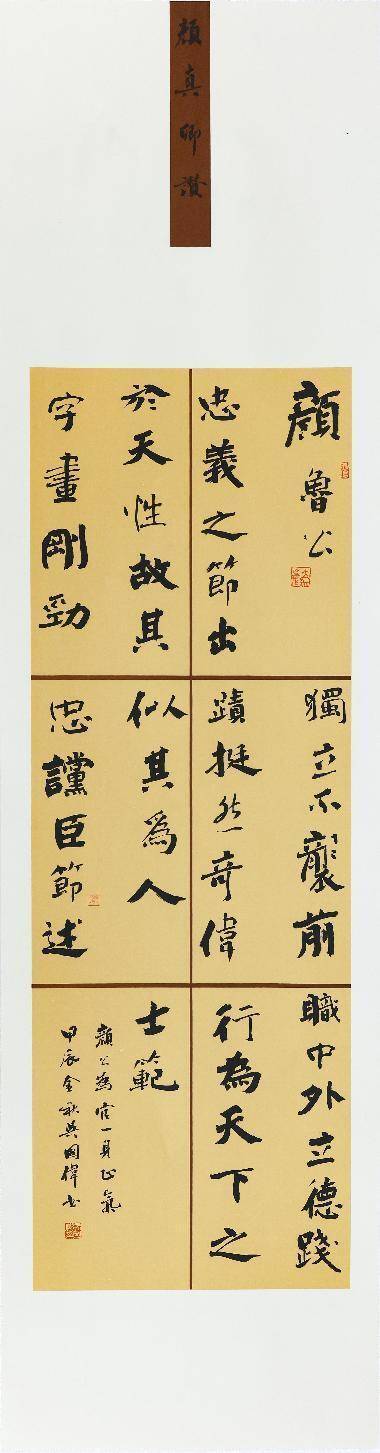 顏真卿讚
顏魯公
忠義之節出
於天性故其
字畫剛勁
獨立不襲前
蹟挺然奇偉
似其爲人
忠讜臣節述
職中外立德踐
行為天下之
士範
顏公為官一身正氣
甲辰金秋吳國偉書